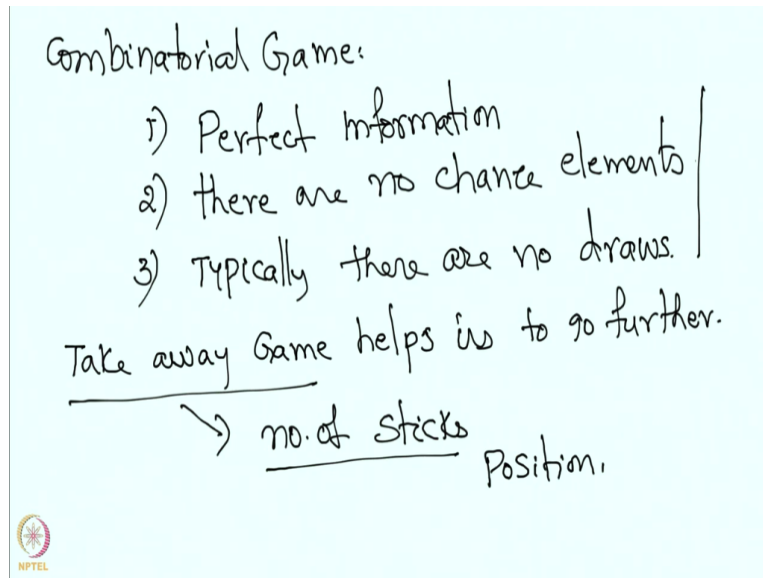 Combinatorial Game:
1) Perfect information
2) there are no chance elements
3) Typically there are no draws.
Take away Game helps us to go further.
no. of sticks
Position.
NPTEL